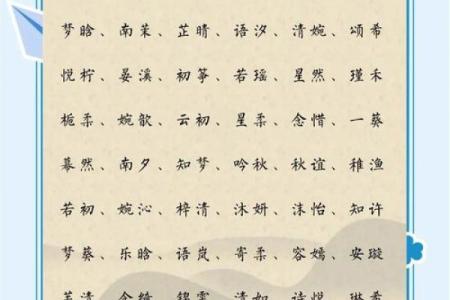 梦晗、南茉、芷晴、语汐、清婉、颂希
悦柠、晏溪、初筝、若瑶、星然、瑾禾
栀柔、婉歆、云初、星柔、念惜、一葵
蓦然、南夕、知梦、吟秋、秋谊、稚渔
若初、婉沁、梓清、沐妍、沫怡、知许
梦葵、乐晗、语岚、寄柔、容嫣、安璇